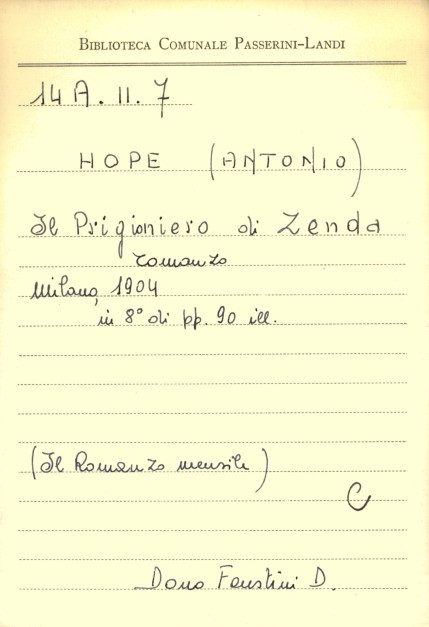 BIBLIOTECA COMUNALE PASSERINI-LANDI
14 A. II. 7
HOPE (ANTONIO)
Il Prigioniero di Zenda
romanzo
Milano, 1904
in 8° di pp. 90 ill.
(Il Romanzo mensile)
C
Dono Faustini D.